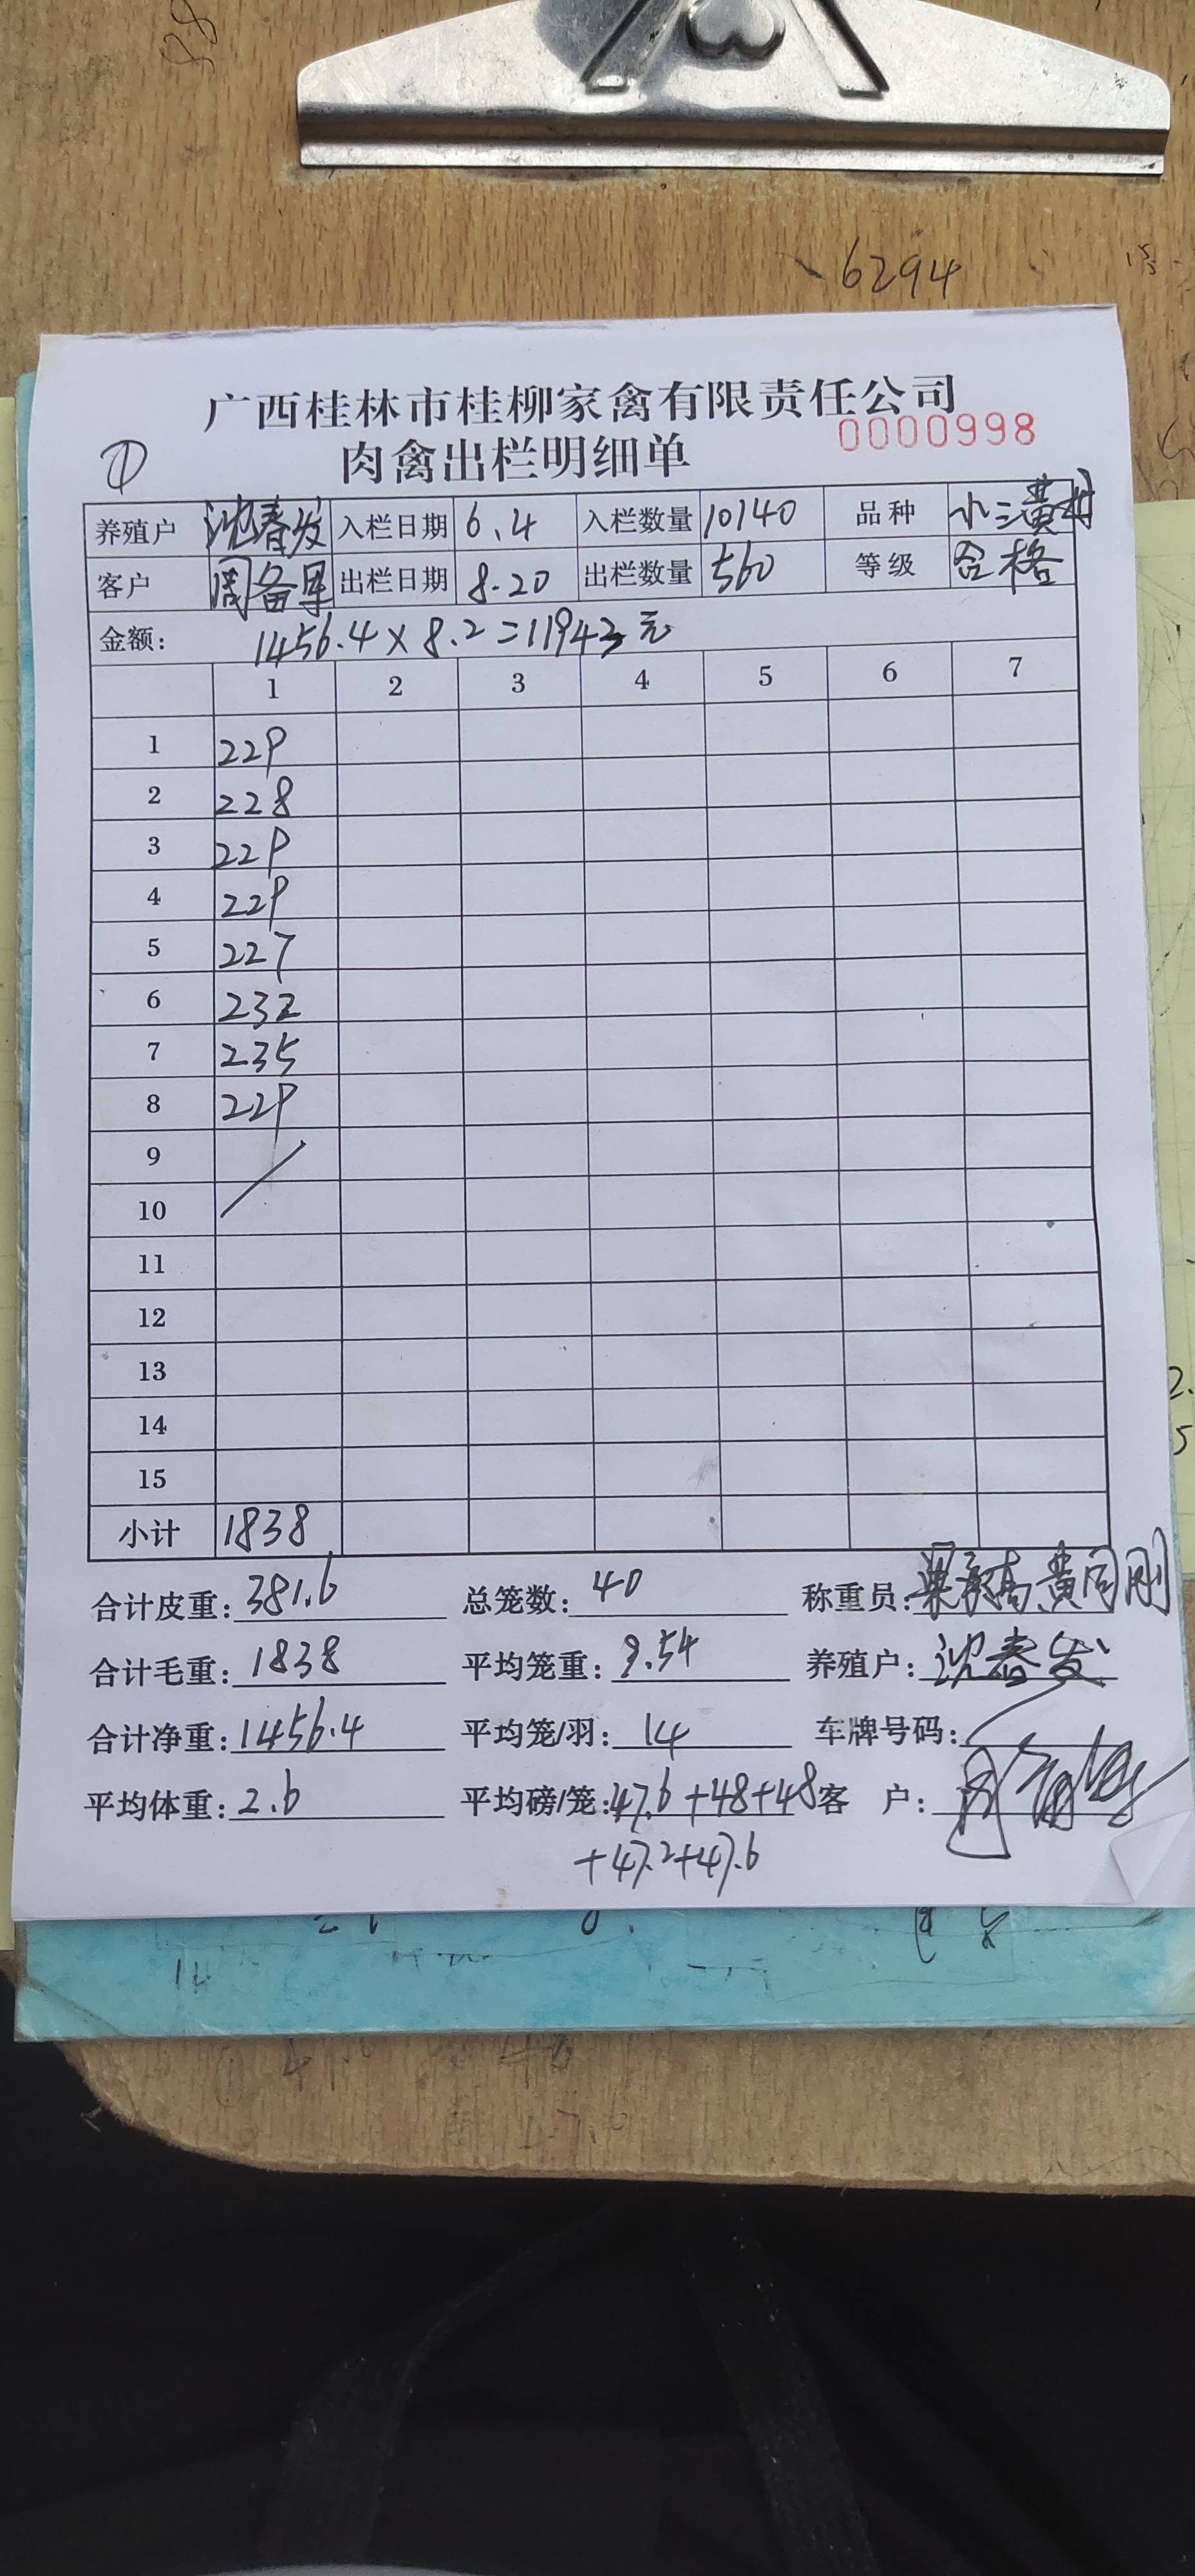 6294
广西桂林市桂柳家禽有限责任公司
0000998
① 肉禽出栏明细单
养殖户 沈春发 入栏日期 6.4 入栏数量 10140 品种 小三黄
客户 周备军 出栏日期 8.20 出栏数量 560 等级 合格
金额: 1456.4×8.2=11943元
1 2 3 4 5 6 7
1 229
2 228
3 229
4 229
5 227
6 232
7 235
8 229
9
10
11
12
13
14
15
小计 1838
合计皮重: 381.6 总笼数: 40 称重员:
合计毛重: 1838 平均笼重: 9.54 养殖户: 沈春发
合计净重: 1456.4 平均笼/羽: 14 车牌号码:
平均体重: 2.6 平均磅/笼: 47.6+48+48 客 户:
+47.2+47.6